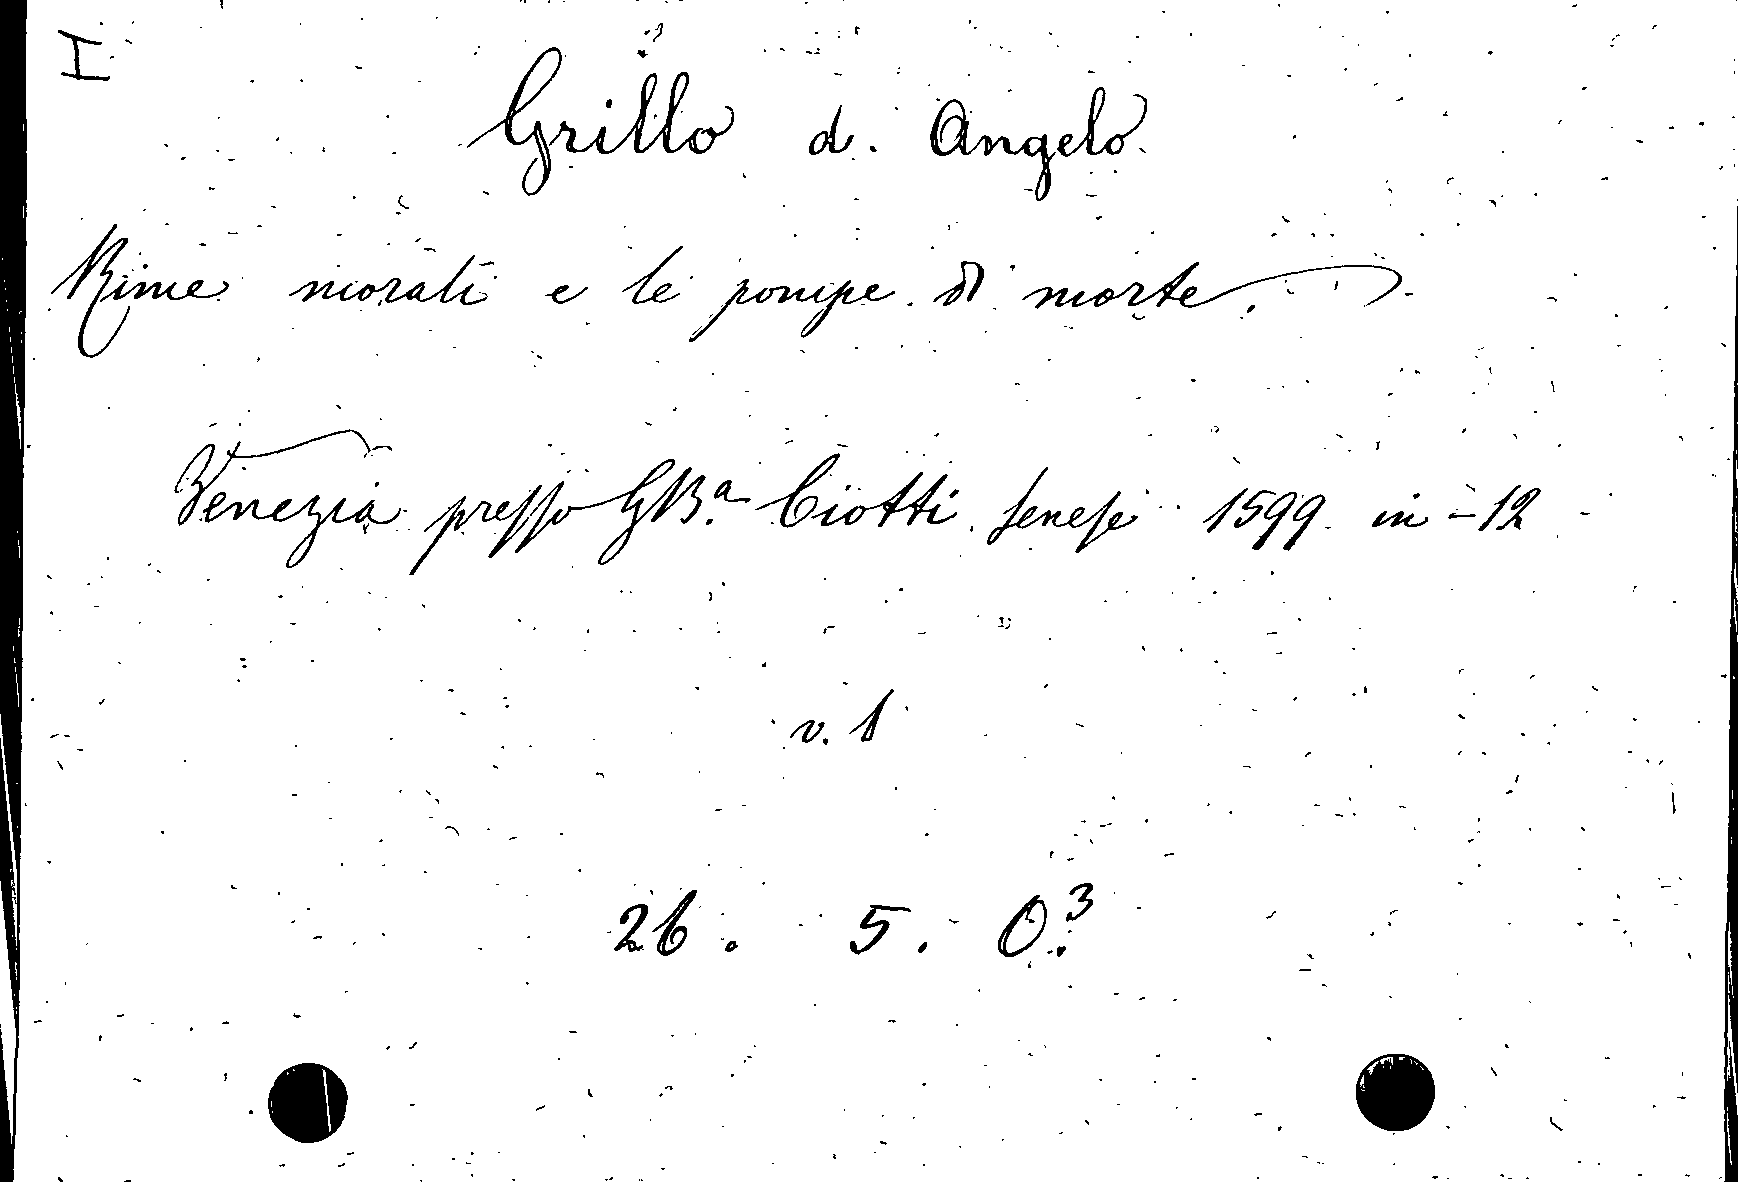 I
Grillo d. Angelo
Rime morali e le pompe di morte.
Venezia presso GB.a Ciotti senese 1599 in-12
v. 1
26. 5. O.3